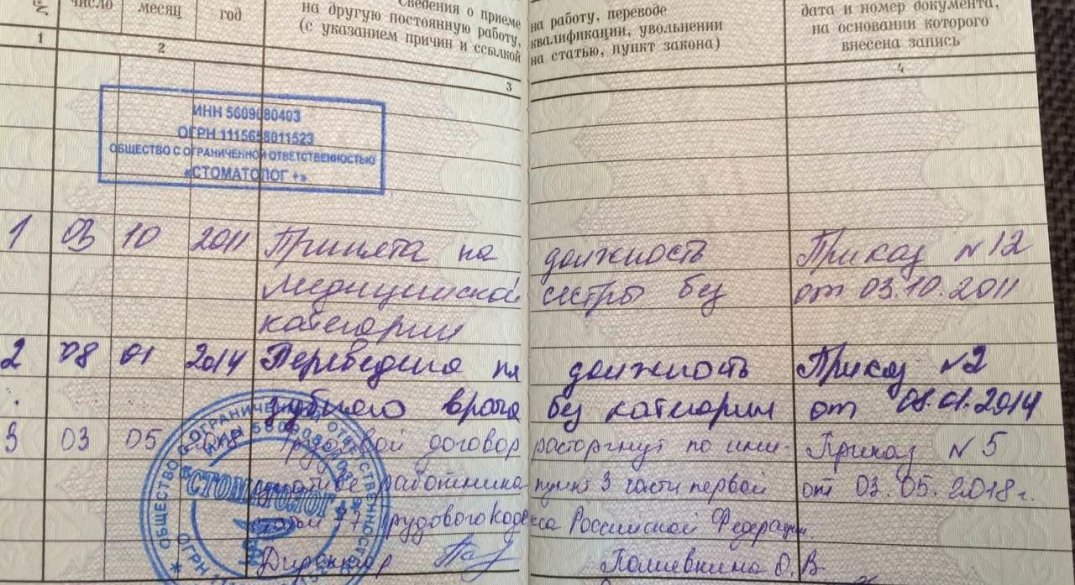 число месяц год
Сведения о приеме на работу, переводе
на другую постоянную работу, квалификации, увольнении
(с указанием причин и ссылкой на статью, пункт закона)
дата и номер документа,
на основании которого
внесена запись
1 2 3 4
ИНН 5609080403
ОГРН 1115658011523
ОБЩЕСТВО С ОГРАНИЧЕННОЙ ОТВЕТСТВЕННОСТЬЮ
«СТОМАТОЛОГ +»
1 03 10 2011 Принята на должность Приказ №12
медицинской сестры без от 03.10.2011
категории
2 08 01 2014 Переведена на должность Приказ №2
зубного врача без категории от 08.01.2014
3 03 05 2018 Трудовой договор расторгнут по ини- Приказ №5
циативе работника пункт 3 части первой от 03.05.2018г.
статьи 77 Трудового кодекса Российской Федерации
Директор О.В.
ОБЩЕСТВО С ОГРАНИЧЕННОЙ ОТВЕТСТВЕННОСТЬЮ
"СТОМАТОЛОГ +"